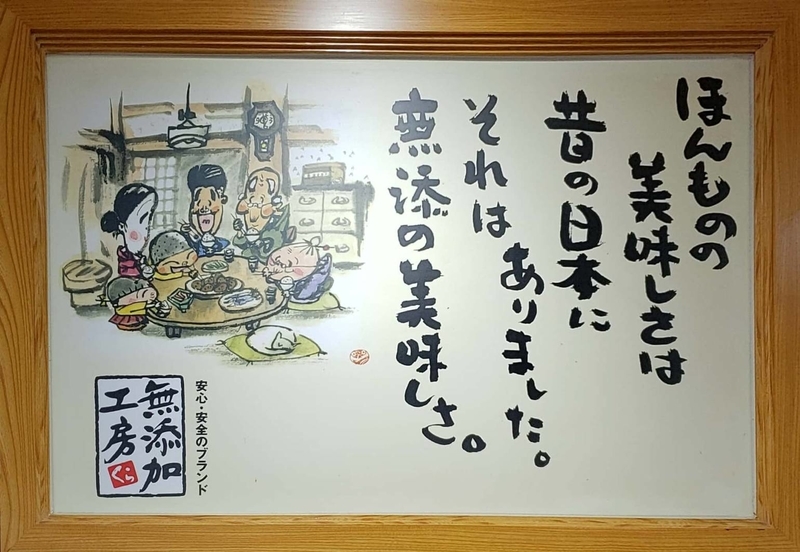 ほんものの
美味しさは
昔の日本に
ありました。
それは
無添の美味しさ。
安心・安全のブランド
無添加
工房
くら